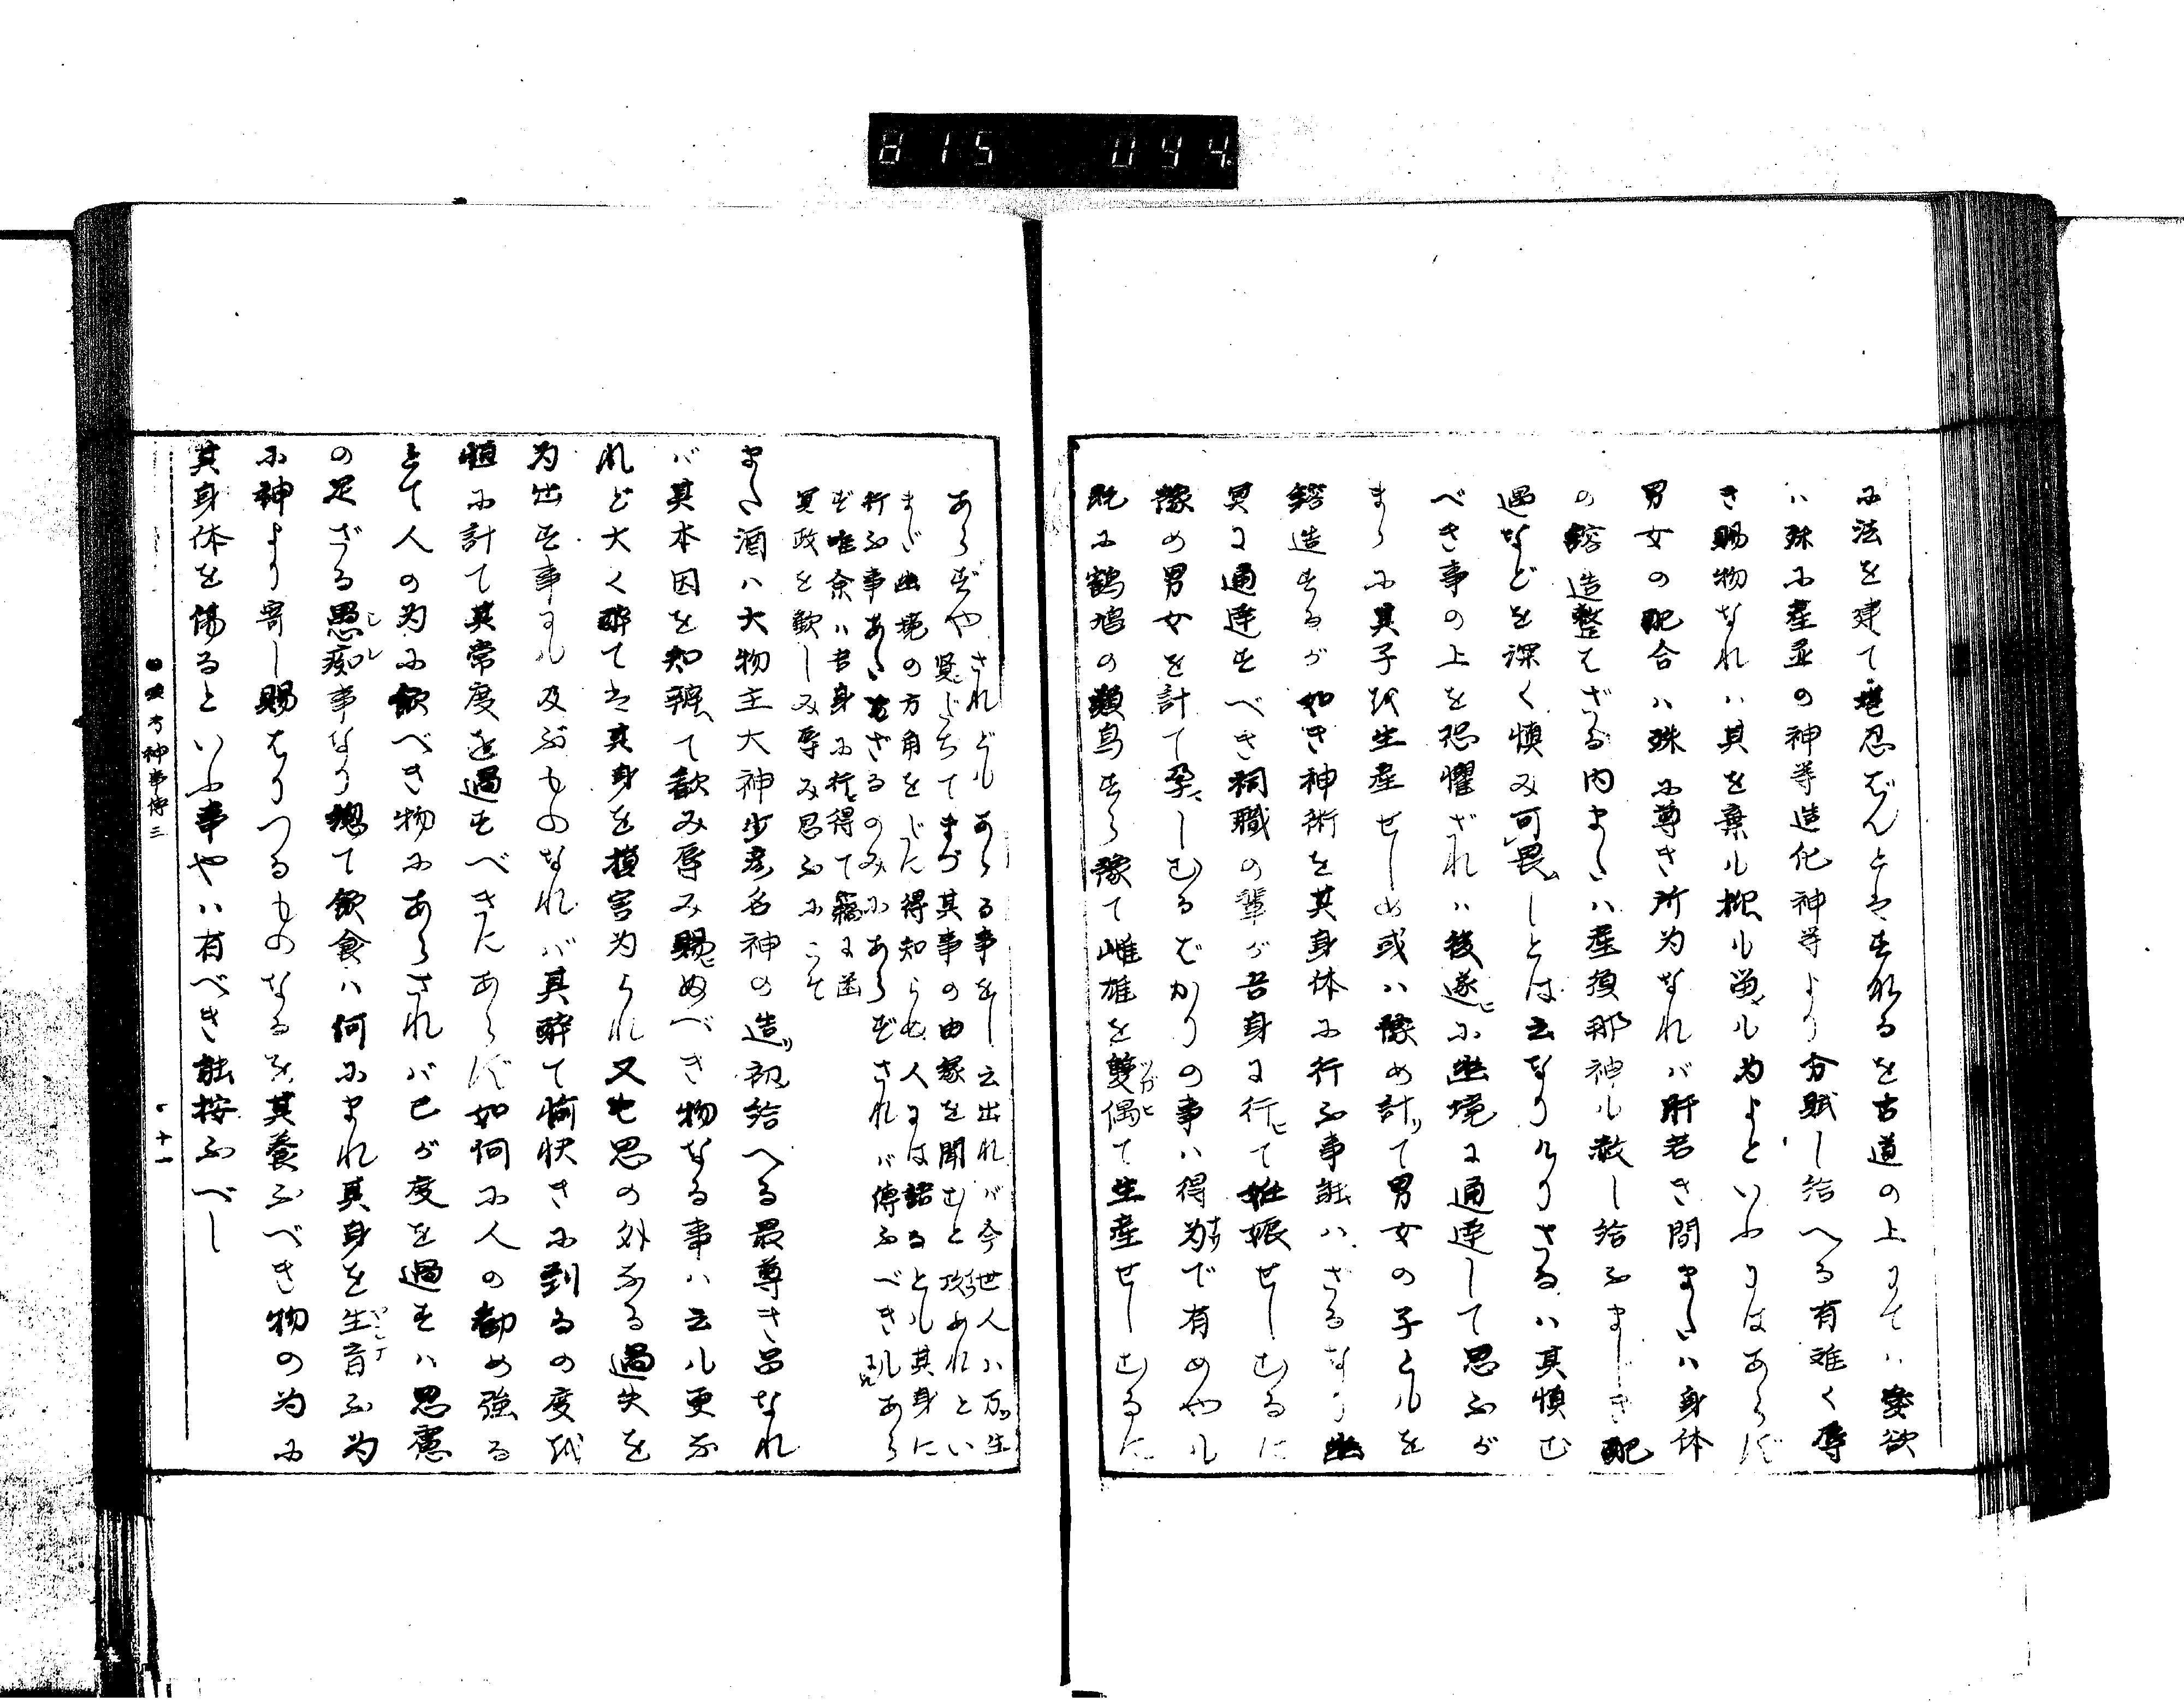 815 044
に法を建て堪忍ばんとはすれるを古道の上にてハ愛欲
ハ殊に産並の神等造化神等より分賦し給へる有難く辱
き賜物なれハ其を棄ルも為よといふにはあらば
男女の配合ハ殊に尊き所為なれバ肝若き間またハ身体
の鎔造整てざる内またハ産須那神ル赦し給ふまじき配
過などを深く慎み可畏しとは云なりけりさるハ其慎む
べき事の上を恐懼ざれハ後遂に幽境に通達して思ふが
まゝに其子を生産せしめ或ハ豫め計て男女の子どもを
鎔造するが如き神術を其身体に行ふ事能ハざるなり幽
冥に通達すべき祠職の輩が吾身に行て妊娠せしむるに
豫め男女を計て孕しむるばかりの事ハ得為で有めやも
既に鶴鳩の類鳥すら豫て雌雄を雙偶て生産せしむるに
あらずやされどもあらる事をし云出れバ今世人ハ万生
賢しらちてまづ其事の由縁を聞むと攻めれとい
まだ幽境の方角をだに得知らぬ人には語るとも其身に
行ふ事あたはざるのみにあらずされバ傳ふべきにもあら
ず唯余ハ吾身に行得て竊に幽
冥政を歓しみ辱み思ふにこそ
また酒ハ大物主大神少彦名神の造り初給へる最尊き品なれ
バ其本因を知辨て歓み辱み賜ぬべき物なる事ハ云も更な
れど大く酔ては其身を損害為られ又も思の外なる過失を
為出す事にも及ぶものなれバ其酔て愉快きに到るの度を
恒に計て其常度を過すべきにあらば如何に人の勧め強る
とて人の為に飲べき物にあらされバ己が度を過すハ思慮
の足ざる愚痴事なり惣て飲食ハ何にまれ其身を生育ふ為
に神より寄し賜はりつるものなるを其養ふべき物の為に
其身体を傷るといふ事やハ有べき能按ふべし
神事傳三
十一